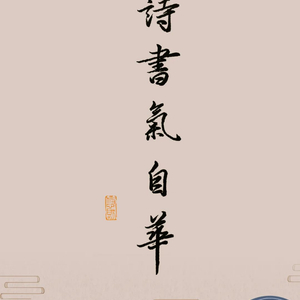 詩書氣自華